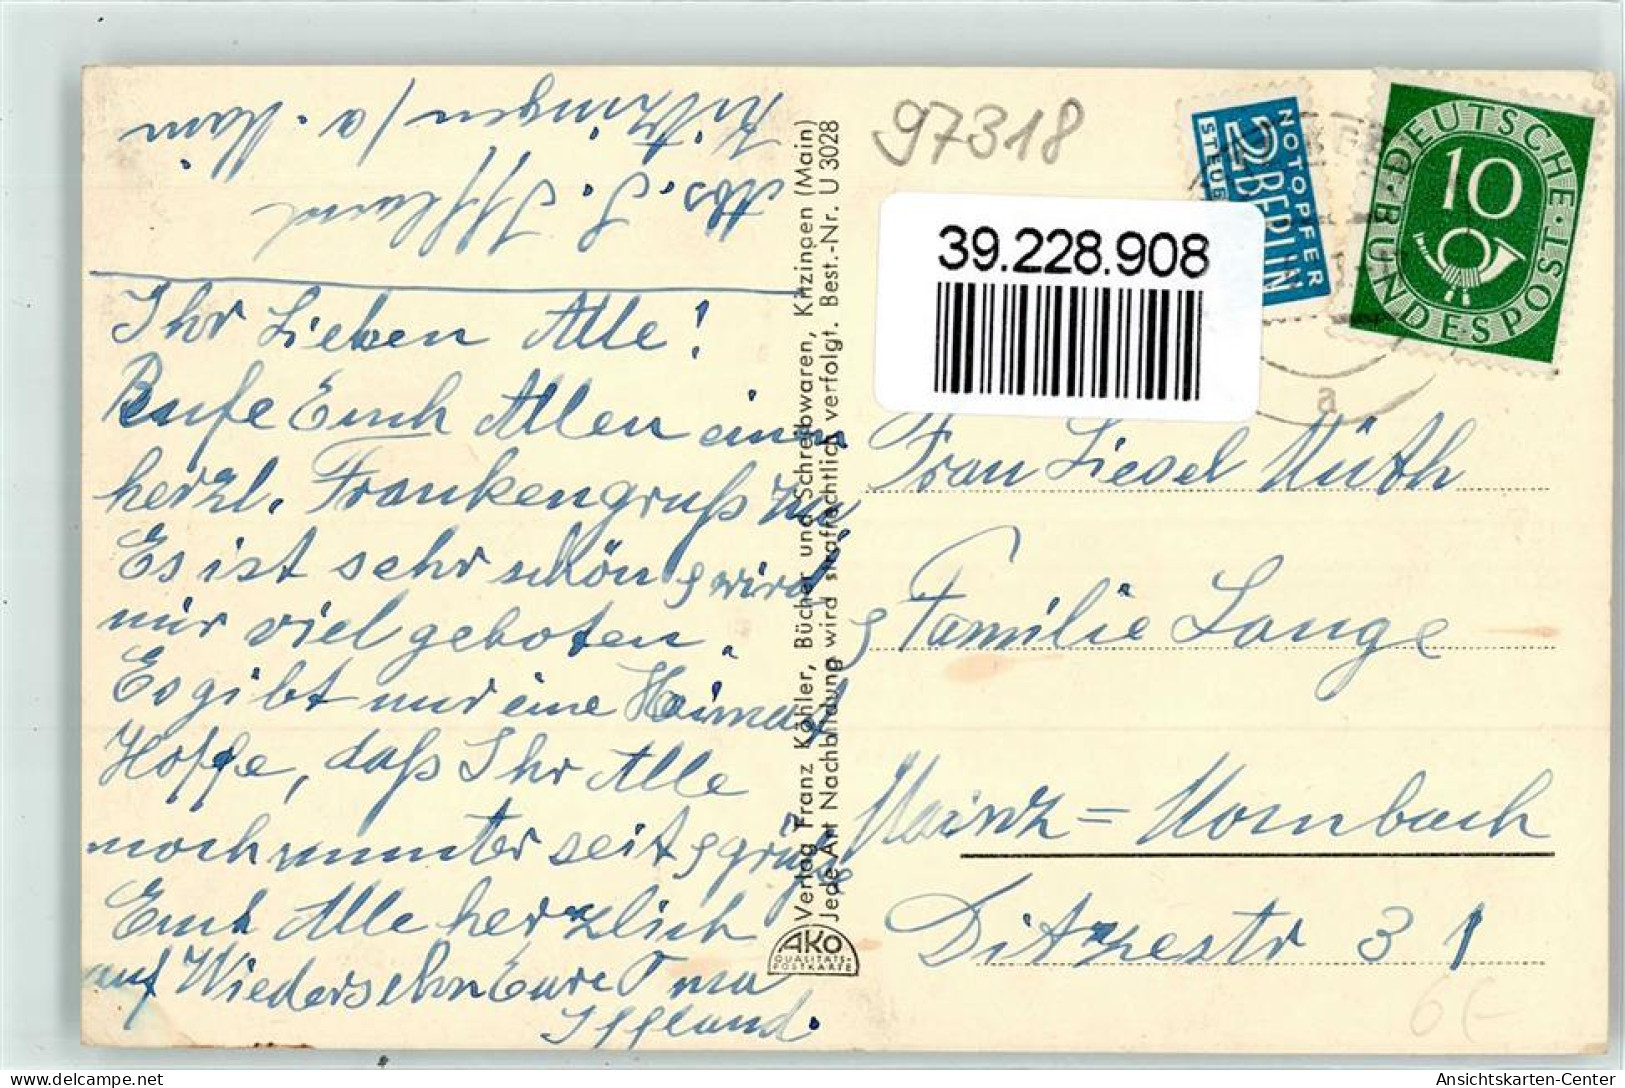 Abs. S. Iffland
Kitzingen / a. Main
Ihr Lieben Alle!
Rufe Euch Allen einen
herzl. Frankengruß zu
Es ist sehr schön, wird
mir viel geboten.
Es gibt nur eine Heimat
Hoffe, daß Ihr Alle
noch munter seit, grüße
Euch Alle herzlich
auf Wiedersehn Eure Oma
Iffland.
Verlag Franz Köhler, Bücher und Schreibwaren, Kitzingen (Main)
Jede Art Nachbildung wird strafrechtlich verfolgt. Best.-Nr. U 3028
AKO
QUALITÄTS-
POSTKARTE
97318
39.228.908
NOTOPFER
2 BERLIN
STEUER
DEUTSCHE
BUNDESPOST
10
a
Frau Liesel Müth
Familie Lange
Mainz = Mombach
Ditzestr 31
6€-
Ansichtskarten-Center